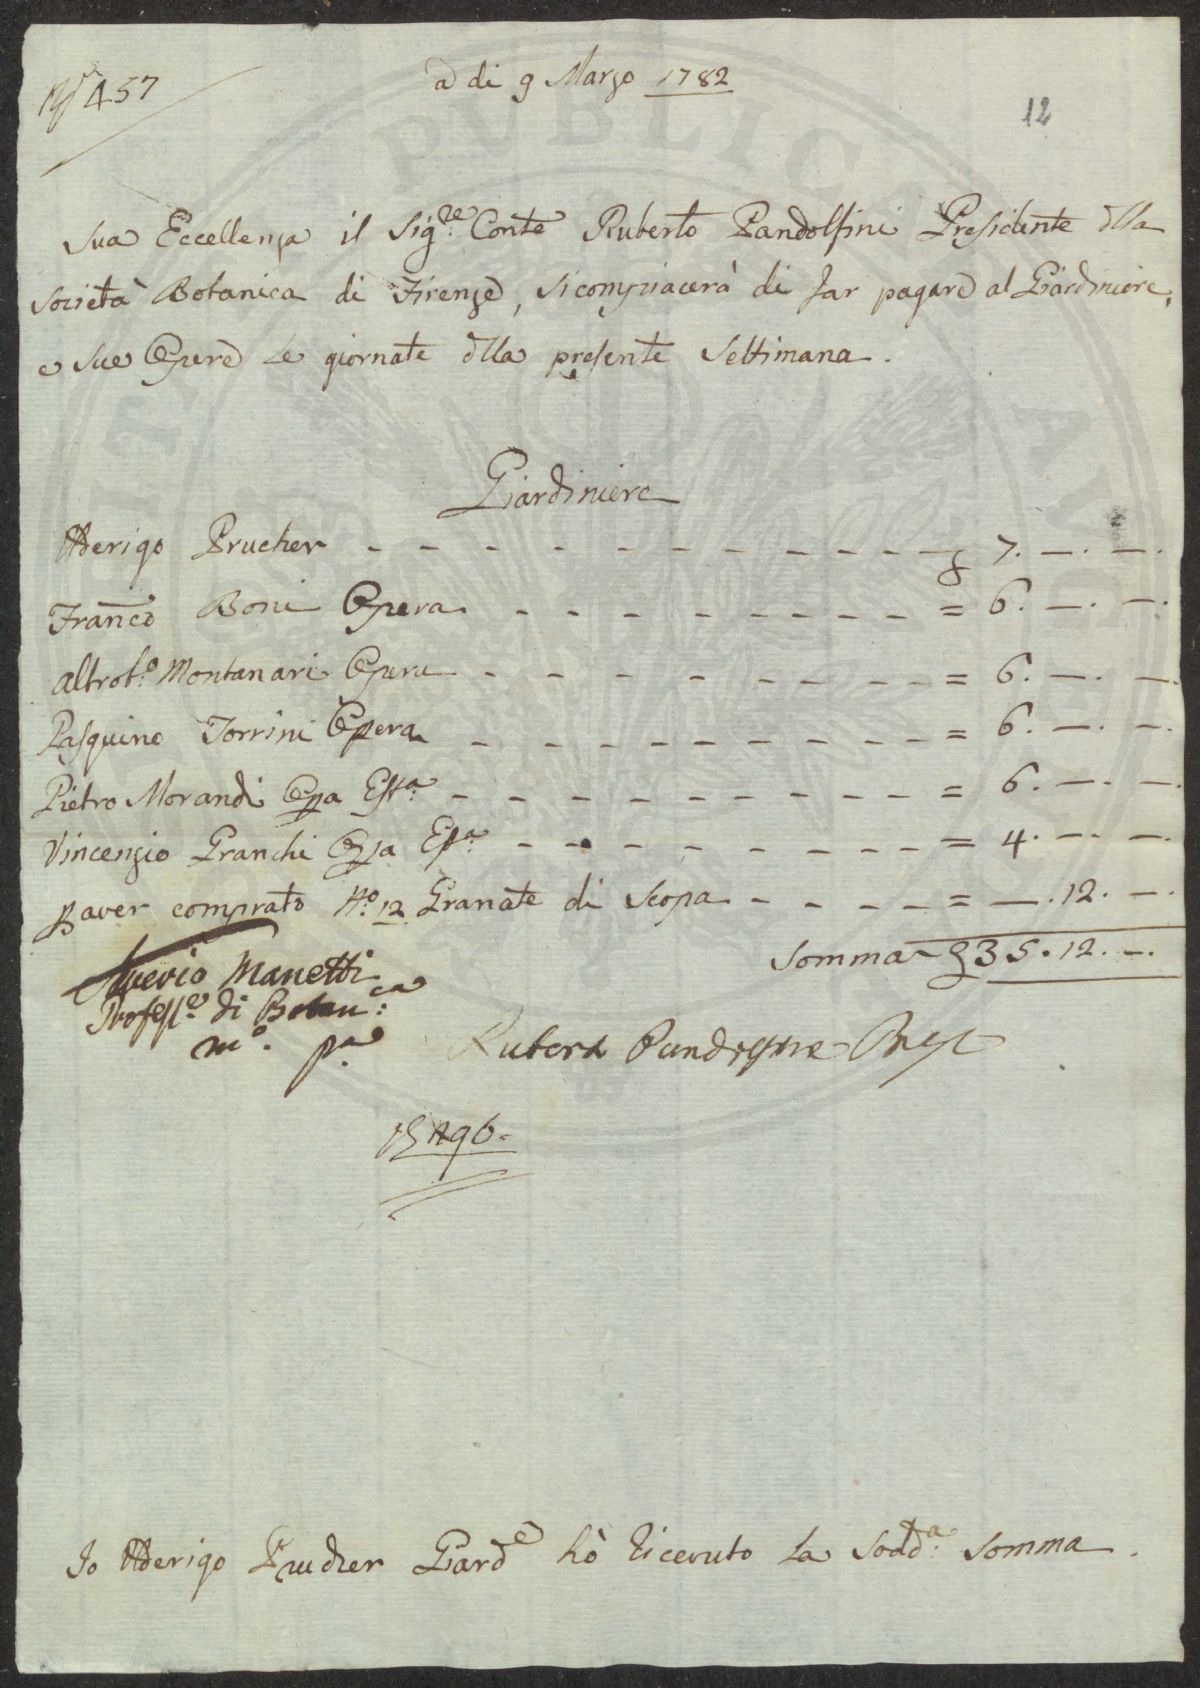 N.º 457
a di 9 Marzo 1782
12
Sua Eccellenza il Sig.re Conte Ruberto Pandolfini Presidente dlla
Società Botanica di Firenze, si compiacerà di far pagare al Giardiniere,
e sue Opere le giornate dlla presente Settimana.
Giardiniere
Aderigo Prucher - - - - - - - - - - - - - 7. —. —.
Franco Boni Opera - - - - - - - = 6. —. —.
Altrob.º Montanari Opera - - - - - - - = 6. —. —.
Pasquino Torrini Opera - - - - - - - - = 6. —. —.
Pietro Morandi Opa Est.a - - - - - - - - - = 6. —. —.
Vincenzio Granchi Opa Est.a - - - - - - - - = 4. —. —.
P aver comprato N.º 12 Granate di Scopa - - - - = —. 12. —.
Somma 35. 12. —.
Saverio Manetti
Profess.e di Botan.ca
m.º p.a
Ruberto Pandolfini Preste
496.
PVBLIC
Io Aderigo Prucher Giard.e hò riceuuto la Sodd.a Somma.